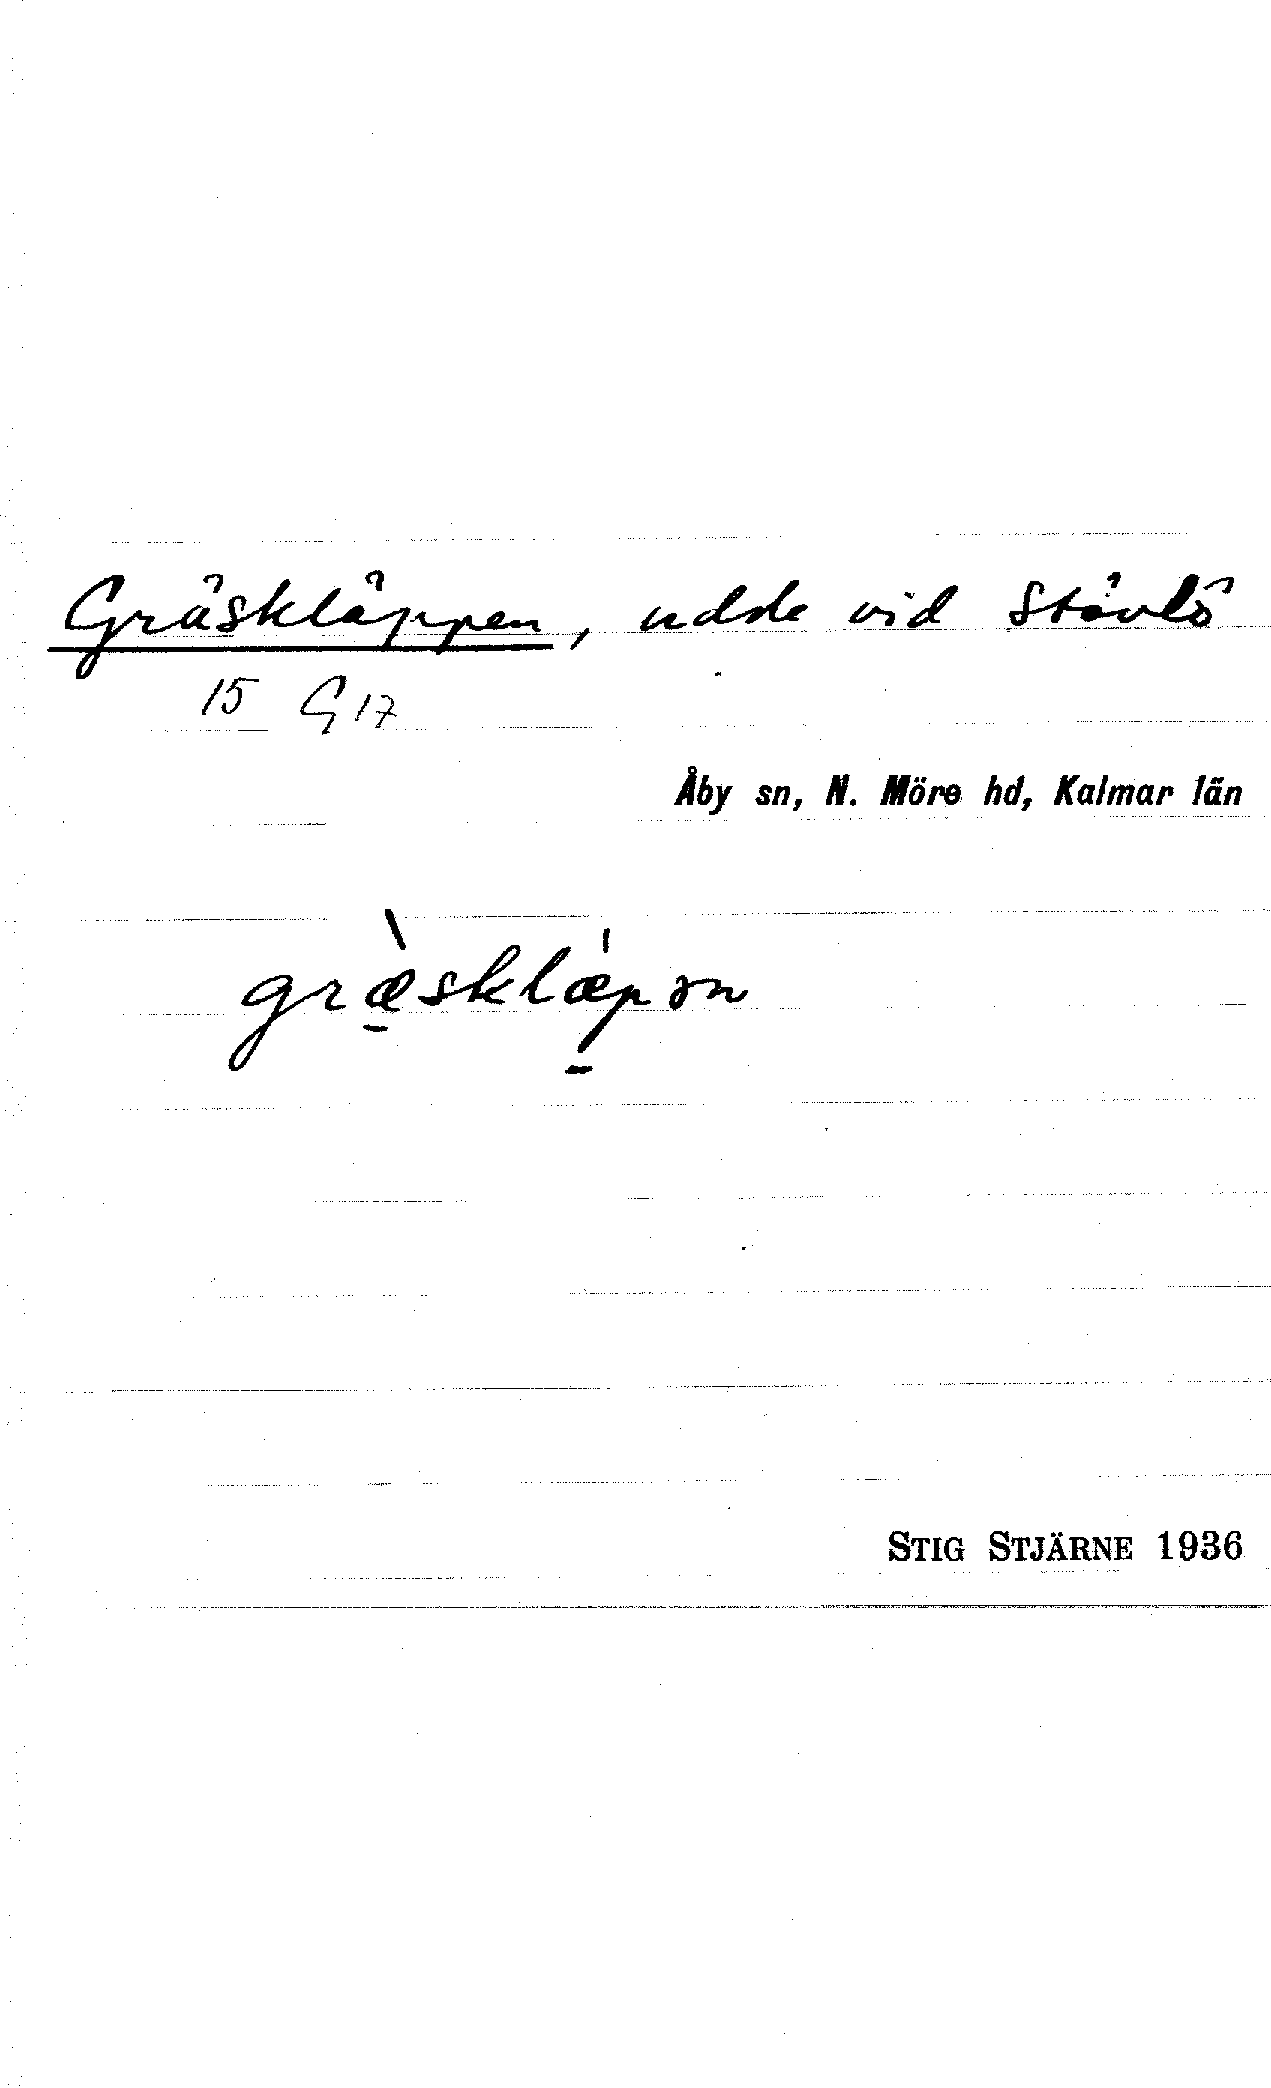 Gräskläppen, udde vid Stävlö
15 G 17
Åby sn, N. Möre hd, Kalmar län
græ̀sklæ̍pən
STIG STJÄRNE 1936